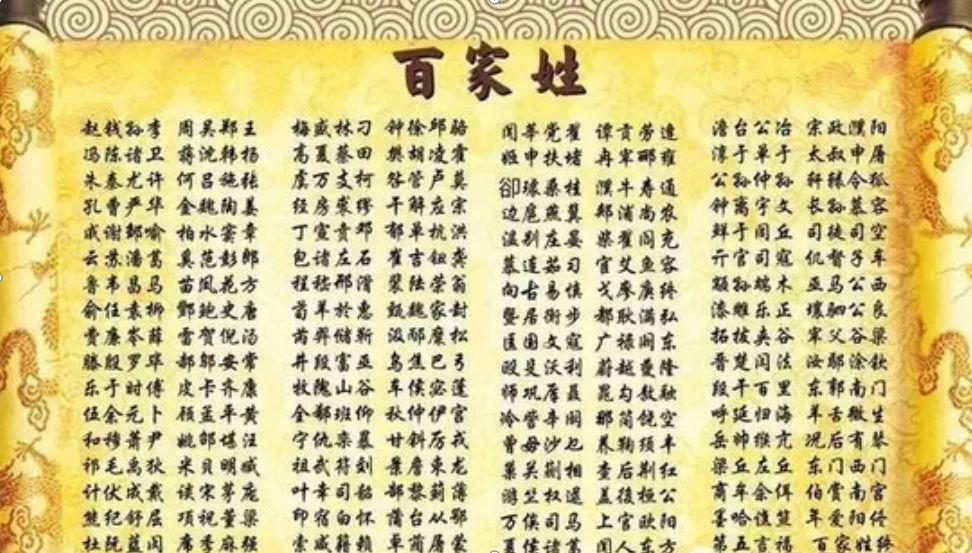 百家姓
赵钱孙李 周吴郑王
冯陈诸卫 蒋沈韩杨
朱秦尤许 何吕施张
孔曹严华 金魏陶姜
戚谢邹喻 柏水窦章
云苏潘葛 奚范彭郎
鲁韦昌马 苗凤花方
俞任袁柳 酆鲍史唐
费廉岑薛 雷贺倪汤
滕殷罗毕 郝邬安常
乐于时傅 皮卞齐康
伍余元卜 顾孟平黄
和穆萧尹 姚邵湛汪
祁毛禹狄 米贝明臧
计伏成戴 谈宋茅庞
熊纪舒屈 项祝董梁
杜阮蓝闵 席季麻强
梅盛林刁 钟徐邱骆
高夏蔡田 樊胡凌霍
虞万支柯 昝管卢莫
经房裘缪 干解应宗
丁宣贲邓 郁单杭洪
包诸左石 崔吉钮龚
程嵇邢滑 裴陆荣翁
荀羊於惠 甄魏家封
芮羿储靳 汲邴糜松
井段富巫 乌焦巴弓
牧隗山谷 车侯宓蓬
全郗班仰 秋仲伊宫
宁仇栾暴 甘钭厉戎
祖武符刘 景詹束龙
叶幸司韶 郜黎蓟薄
印宿白怀 蒲台从鄂
索咸籍赖 卓蔺屠蒙
闻莘党翟 谭贡劳逄
姬申扶堵 冉宰郦雍
卻璩桑桂 濮牛寿通
边扈燕冀 郏浦尚农
温别庄晏 柴瞿阎充
慕连茹习 宦艾鱼容
向古易慎 戈廖庾终
暨居衡步 都耿满弘
匡国文寇 广禄阙东
殴殳沃利 蔚越夔隆
师巩厍聂 晁勾敖融
冷訾辛阚 那简饶空
曾毋沙乜 养鞠须丰
巢关蒯相 查后荆红
游竺权逯 盖後桓公
万俟司马 上官欧阳
夏侯诸葛 闻人东方
澹台公冶 宗政濮阳
淳于单于 太叔申屠
公孙仲孙 轩辕令狐
钟离宇文 长孙慕容
鲜于闾丘 司徒司空
亓官司寇 仉督子车
颛孙端木 巫马公西
漆雕乐正 壤驷公良
拓拔夹谷 宰父谷梁
晋楚闫法 汝鄢涂钦
段干百里 东郭南门
呼延归海 羊舌微生
岳帅缑亢 况后有琴
梁丘左丘 东门西门
商牟佘佴 伯赏南宫
墨哈谯笪 年爱阳佟
第五言福 百家姓终